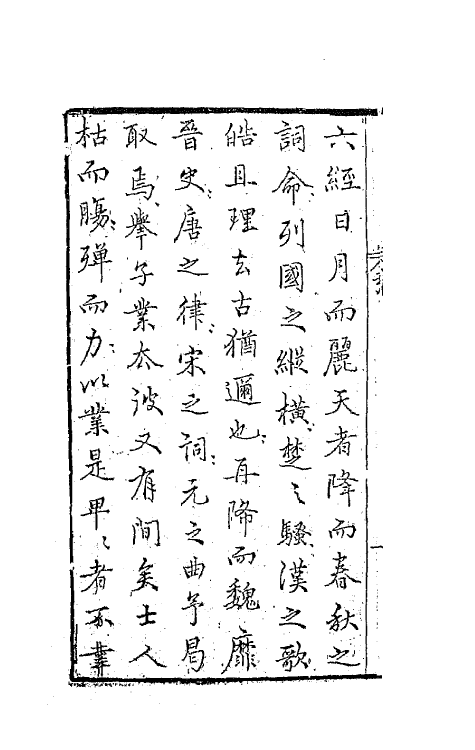 六經日月而麗天者降而春秋之
詞命列國之縱橫楚〻騷漢之歌
皓且理去古猶邇也再降而魏靡
晉史唐之律宋之詞元之曲予曷
取焉舉子業太波又有間矣士人
枯而腸殫而力以業是畢〻者不聿